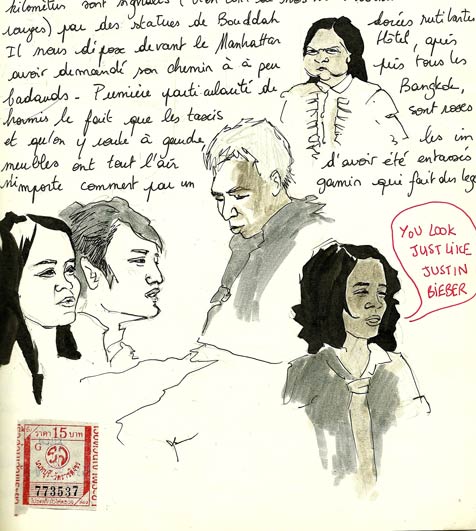 kilomètres sont signalées
rouges) par des statues de Bouddah dorées rutilantes
Il nous dépose devant le Manhattan Hôtel, après
avoir demandé son chemin à à peu près tous les
badauds - Première particularité de Bangkok,
hormis le fait que les taxis sont roses
et qu'on y roule à gauche, les im
meubles ont tout l'air d'avoir été entassés
n'importe comment par un gamin qui fait des lego
YOU LOOK
JUST LIKE
JUSTIN
BIEBER
ราคา 15 บาท
G
773537